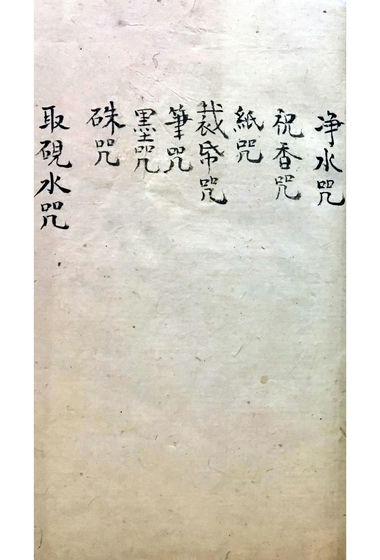 净水咒
祝香咒
紙咒
裁帋咒
筆咒
墨咒
硃咒
取硯水咒